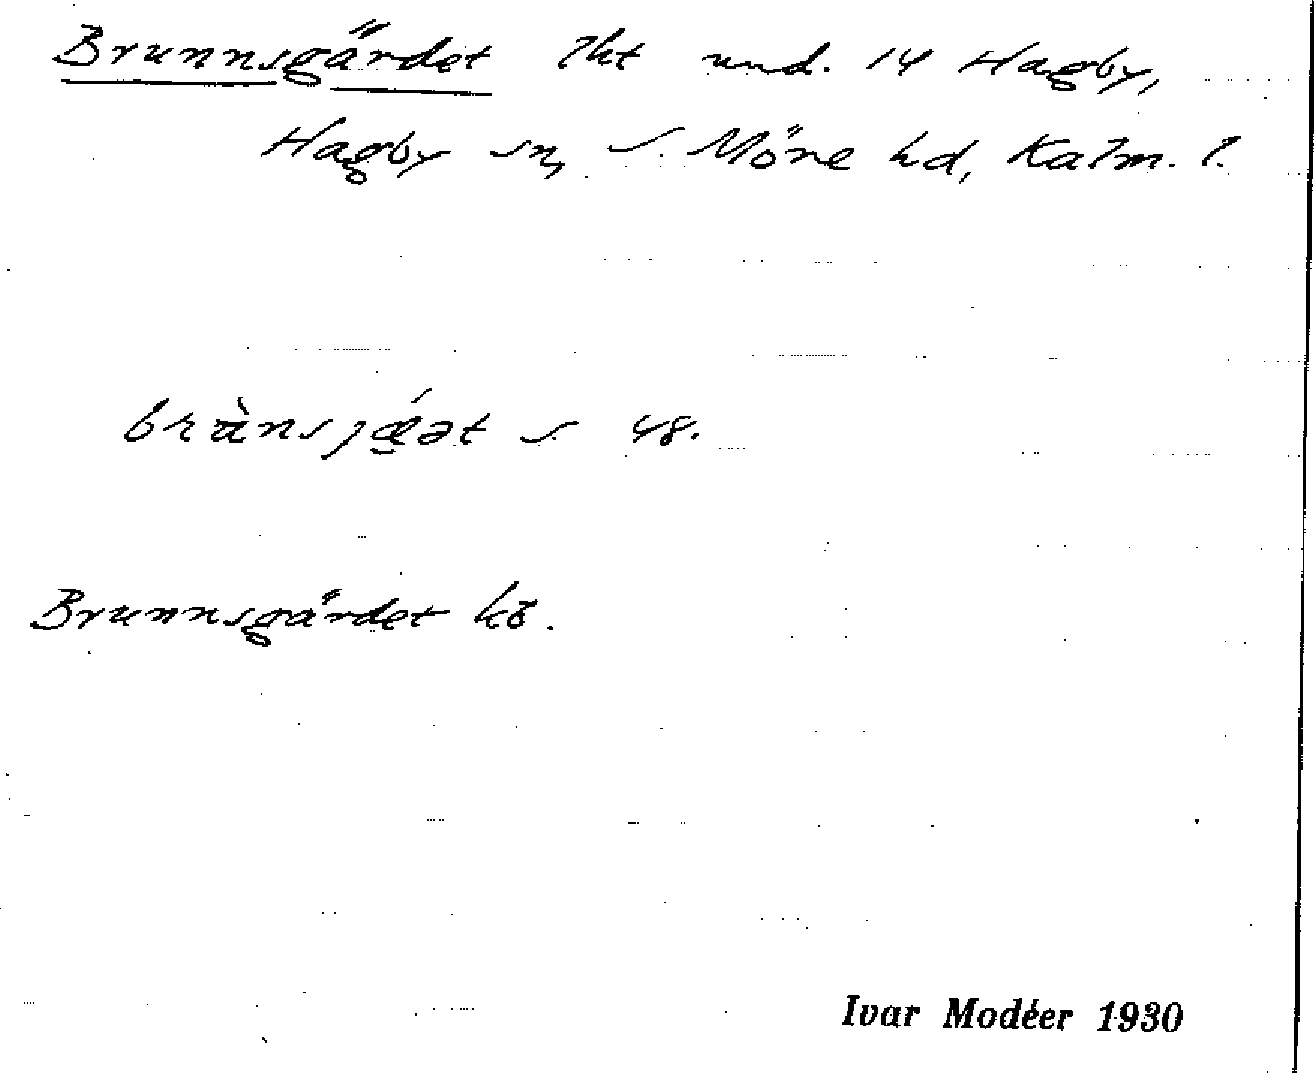 Brunnsgärdet lht und. 14 Hagby,
Hagby sn, S. Möre hd, Kalm. l.
s. 48.
Brunnsgärdet kö.
Ivar Modéer 1930